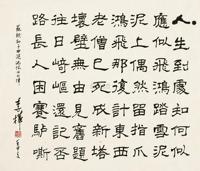 人生到處知何似
應似飛鴻踏雪泥
泥上偶然留指爪
鴻飛那復計東西
老僧已死成新塔
壞壁無由見舊題
往日崎嶇還記否
路長人困蹇驢嘶